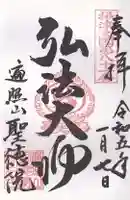 奉拝
令和五年
一月七日
弘法大師
遍照山聖徳院